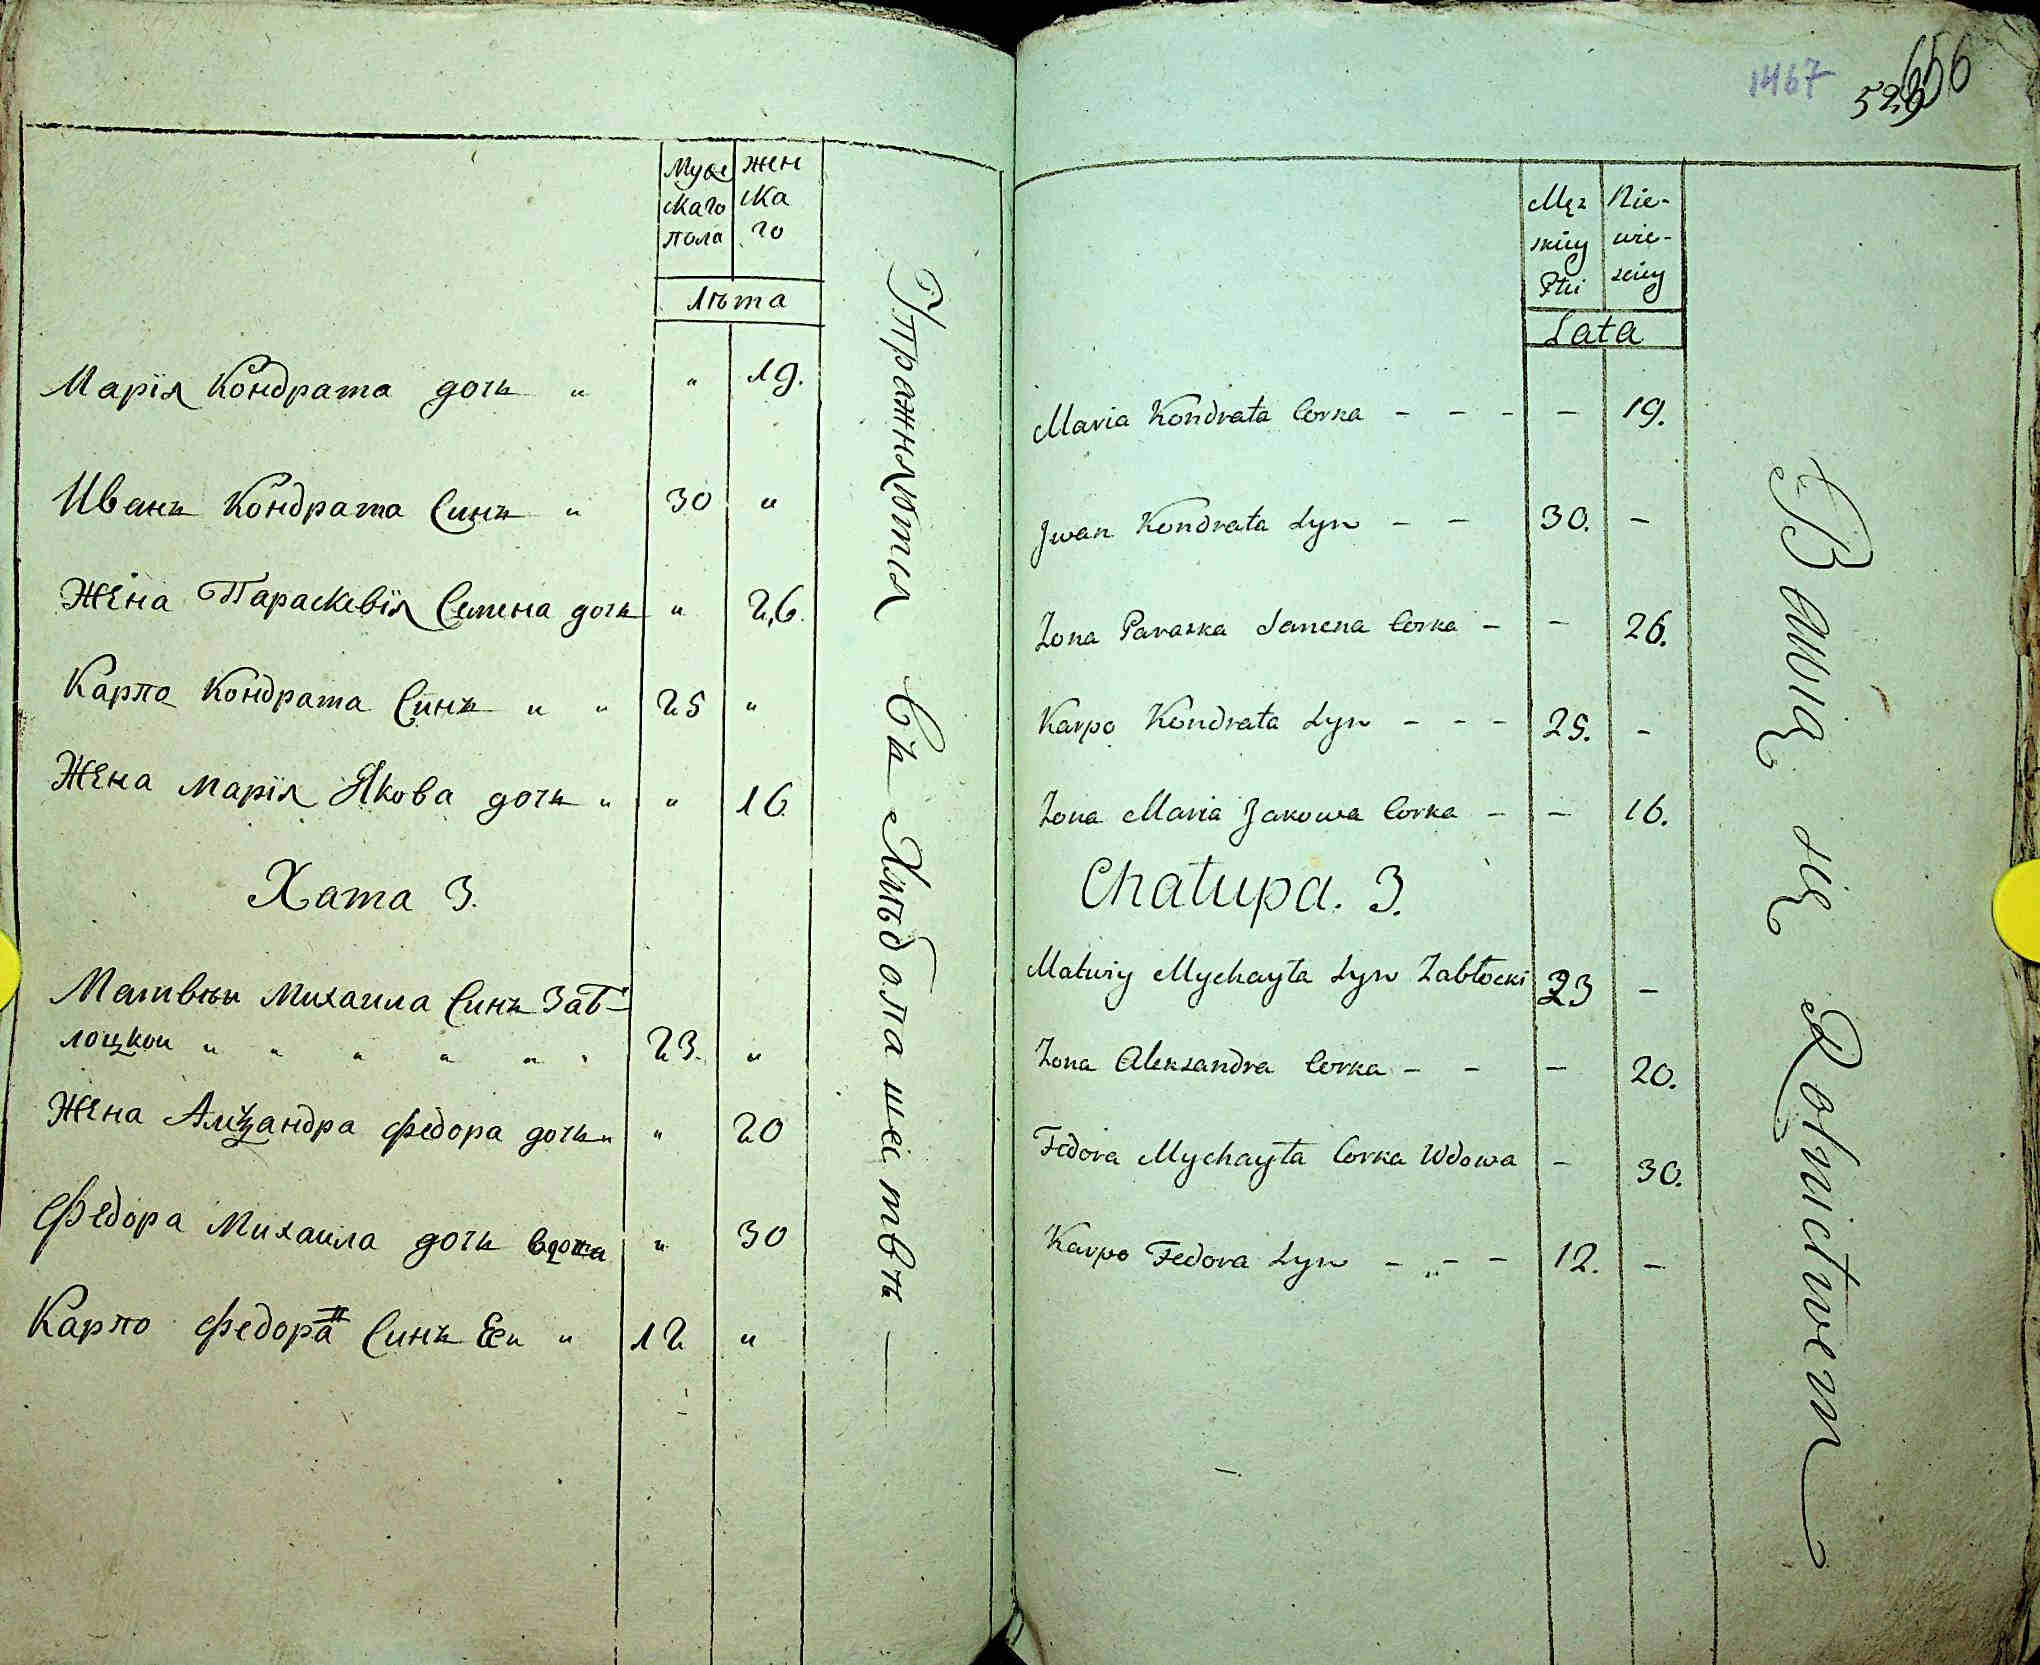 Муже
скаго
пола
жен
ска
го
лѣта
Марія Кондрата дочь " " 19.
Иванъ Кондрата Синъ " 30 "
Жена Параскевія Семена дочь " 26.
Карпо Кондрата Синъ " " 25 "
Жена Марія Якова дочь " " 16
Хата 3.
Матвѣи Михаила Синъ Заб-
лоцкои " " " " " " 23. "
Жена Алеѯандра Федора дочь " " 20
Федора Михаила дочь вдова " 30
Карпо Федора Синъ Еи " 12 "
Упражняются Въ Хлѣбопашествѣ —
1467
529
656
Męz
skiey
Płci
Nie-
wie-
sciey
Lata
Maria Kondrata Corka - - - - 19.
Jwan Kondrata Syn - - 30. -
Zona Paraska Semena Corka - - 26.
Karpo Kondrata Syn - - - 25. -
Zona Maria Jakowa Corka - - 16.
Chałupa. 3.
Matwiy Mychayła Syn Zabłocki 23 -
Zona Aleksandra Corka - - - 20.
Fedora Mychayła Corka Wdowa - 30.
Karpo Fedora Syn - - - 12. -
Bawią się Rolnictwem